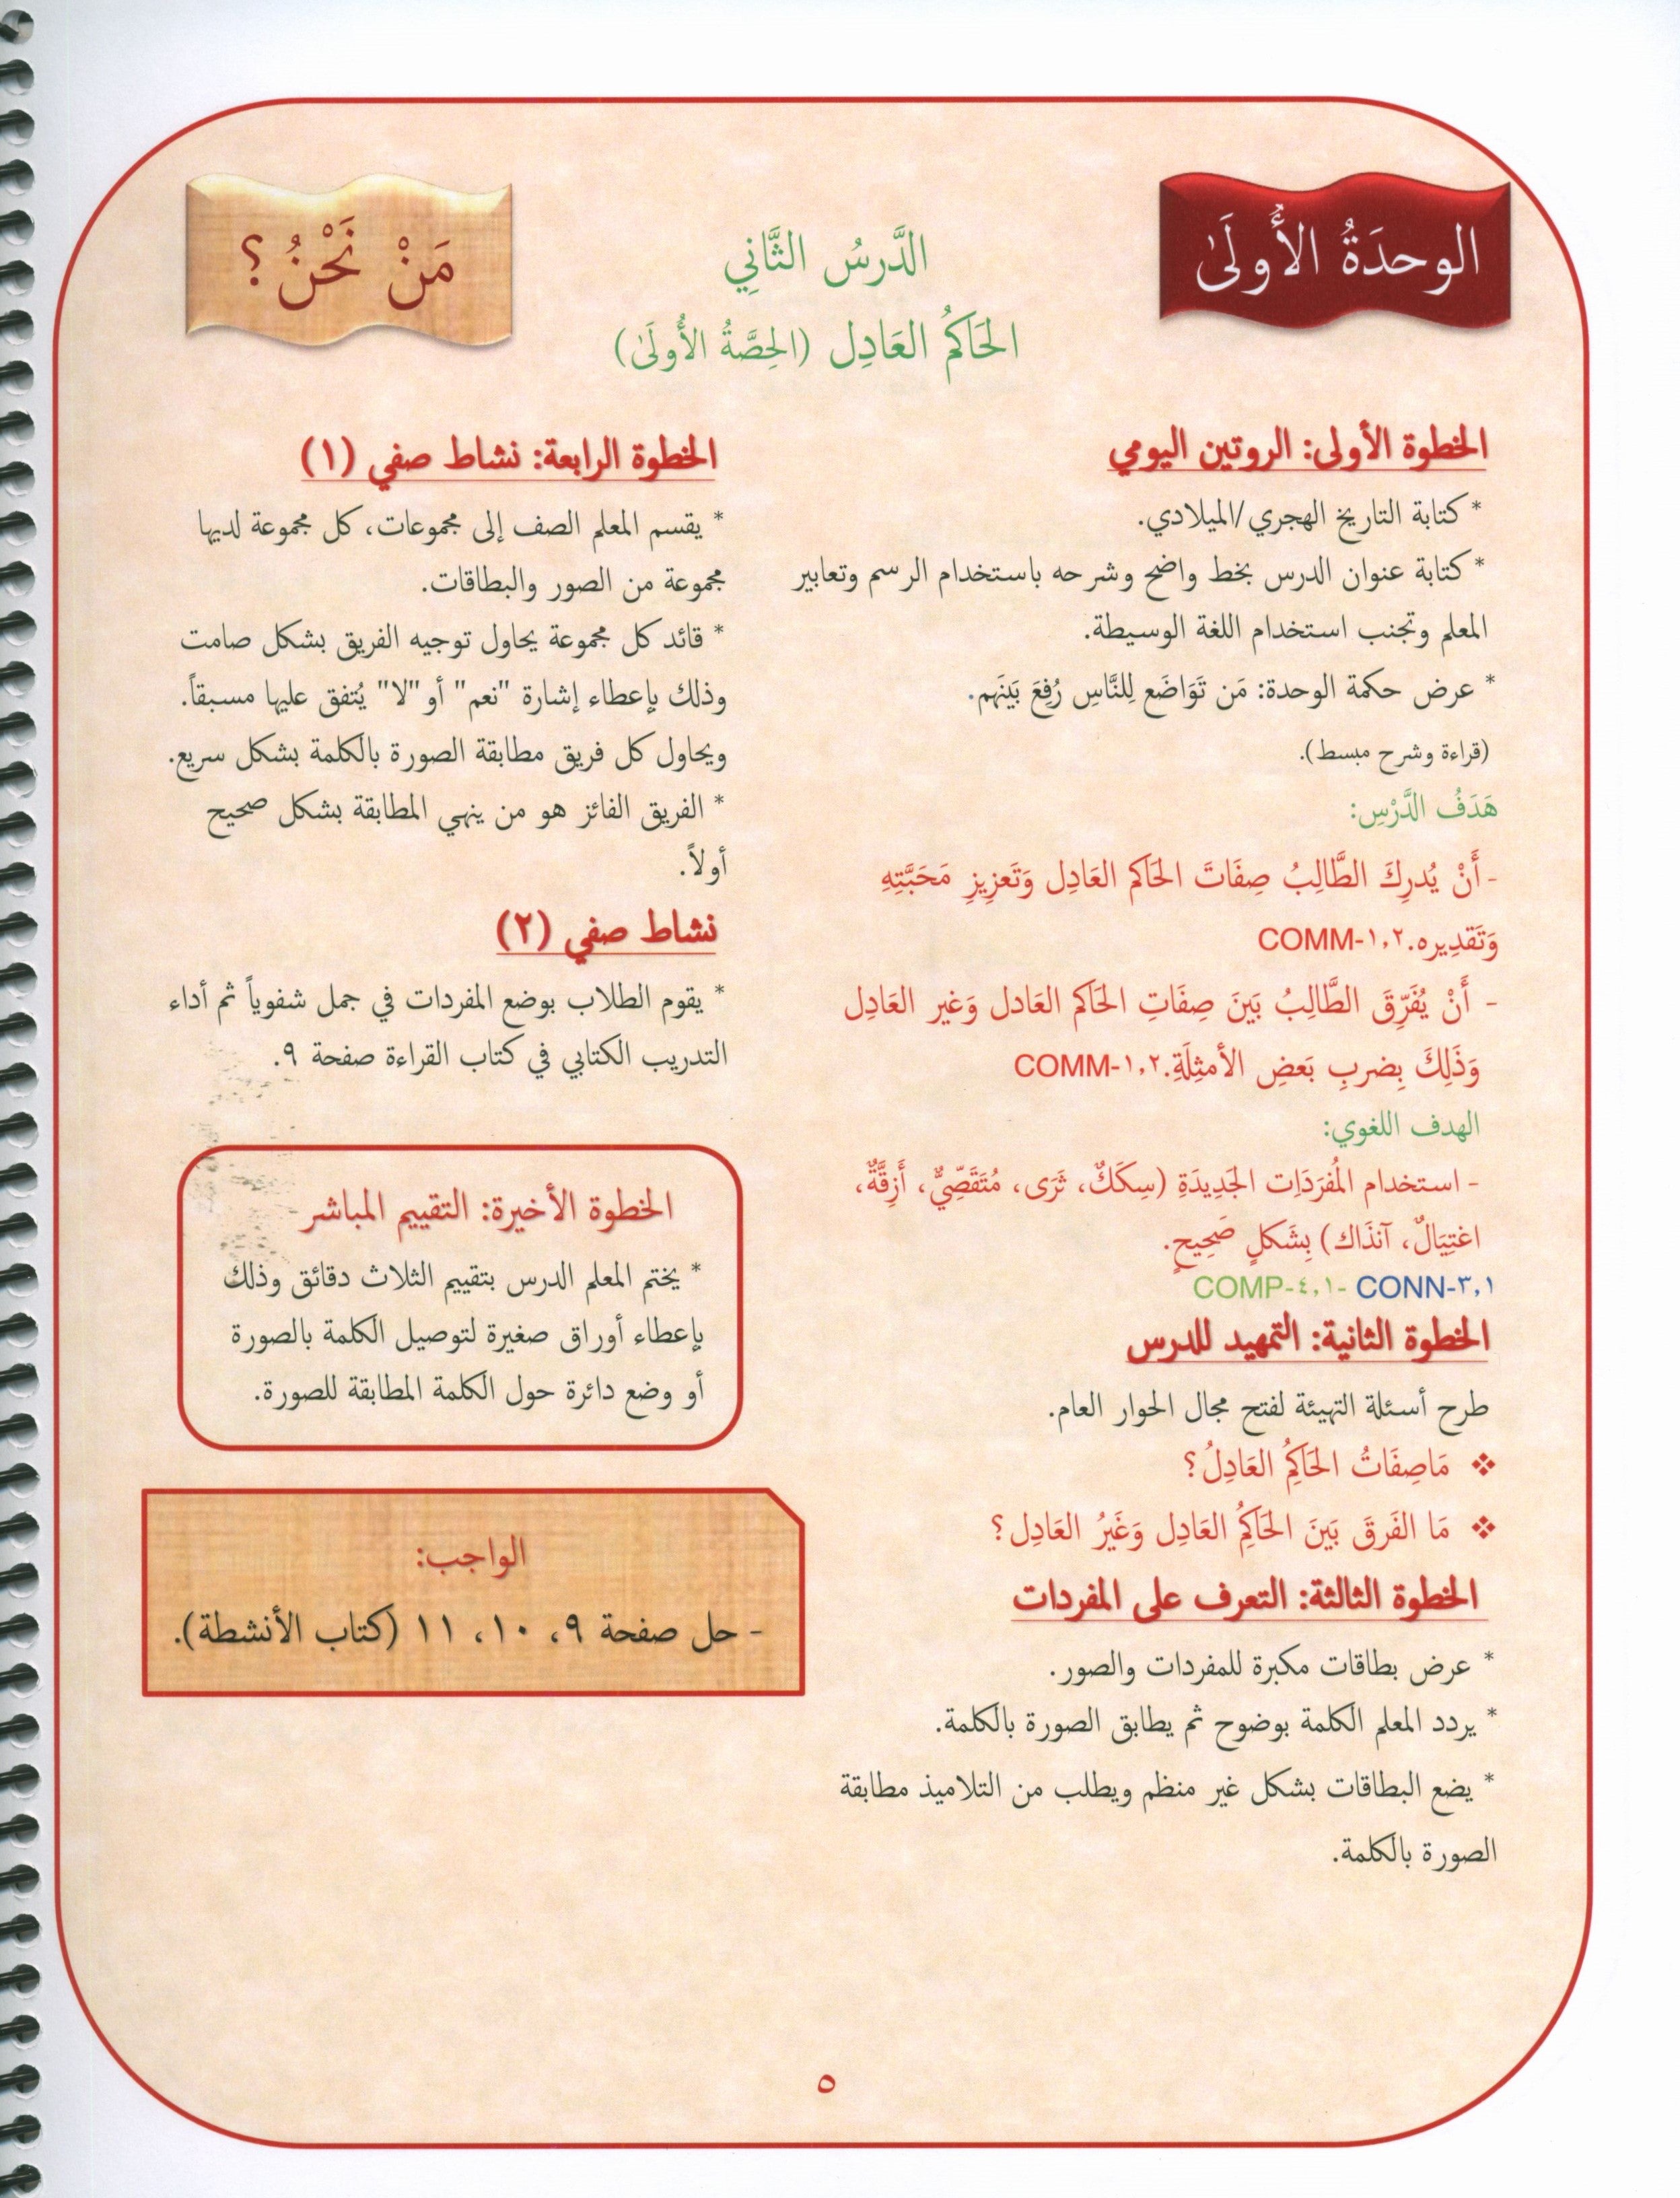 الوحدَةُ الأُولَىٰ
الدَّرسُ الثَّانِي
الحَاكمُ العَادِل (الحِصَّةُ الأُولَىٰ)
مَنْ نَحْنُ؟
الخطوة الأولى: الروتين اليومي
* كتابة التاريخ الهجري/الميلادي.
* كتابة عنوان الدرس بخط واضح وشرحه باستخدام الرسم وتعابير
المعلم وتجنب استخدام اللغة الوسيطة.
* عرض حكمة الوحدة: مَن تَوَاضَع لِلنَّاسِ رُفِعَ بَينَهم.
(قراءة وشرح مبسط).
هَدَفُ الدَّرْسِ:
- أَنْ يُدرِكَ الطَّالِبُ صِفَاتَ الحَاكم العَادِل وَتَعزِيزِ مَحَبَّتِهِ
وَتَقدِيره.COMM-١,٢
- أَنْ يُفَرِّقَ الطَّالِبُ بَينَ صِفَاتِ الحَاكم العَادل وَغَير العَادِل
وَذَلِكَ بِضربِ بَعضِ الأمثِلَةِ.COMM-١,٢
الهدف اللغوي:
- استخدام المُفرَدَاِت الجَدِيدَةِ (سِكَكٌ، ثَرَى، مُتَقَصِّيٌّ، أَزِقَّةٌ،
اغتِيَالٌ، آنذَاك) بِشَكلٍ صَحِيحٍ.
COMP-٤,١- CONN-٣,١
الخطوة الثانية: التمهيد للدرس
طرح أسئلة التهيئة لفتح مجال الحوار العام.
❖ مَاصِفَاتُ الحَاكِمُ العَادِلُ؟
❖ مَا الفَرقَ بَينَ الحَاكِمُ العَادِل وَغَيرُ العَادِل؟
الخطوة الثالثة: التعرف على المفردات
* عرض بطاقات مكبرة للمفردات والصور.
* يردد المعلم الكلمة بوضوح ثم يطابق الصورة بالكلمة.
* يضع البطاقات بشكل غير منظم ويطلب من التلاميذ مطابقة
الصورة بالكلمة.
الخطوة الرابعة: نشاط صفي (١)
* يقسم المعلم الصف إلى مجموعات، كل مجموعة لديها
مجموعة من الصور والبطاقات.
* قائد كل مجموعة يحاول توجيه الفريق بشكل صامت
وذلك بإعطاء إشارة "نعم" أو "لا" يُتفق عليها مسبقاً.
ويحاول كل فريق مطابقة الصورة بالكلمة بشكل سريع.
* الفريق الفائز هو من ينهي المطابقة بشكل صحيح
أولاً.
نشاط صفي (٢)
* يقوم الطلاب بوضع المفردات في جمل شفوياً ثم أداء
التدريب الكتابي في كتاب القراءة صفحة ٩.
الخطوة الأخيرة: التقييم المباشر
* يختم المعلم الدرس بتقييم الثلاث دقائق وذلك
بإعطاء أوراق صغيرة لتوصيل الكلمة بالصورة
أو وضع دائرة حول الكلمة المطابقة للصورة.
الواجب:
- حل صفحة ٩، ١٠، ١١ (كتاب الأنشطة).
٥